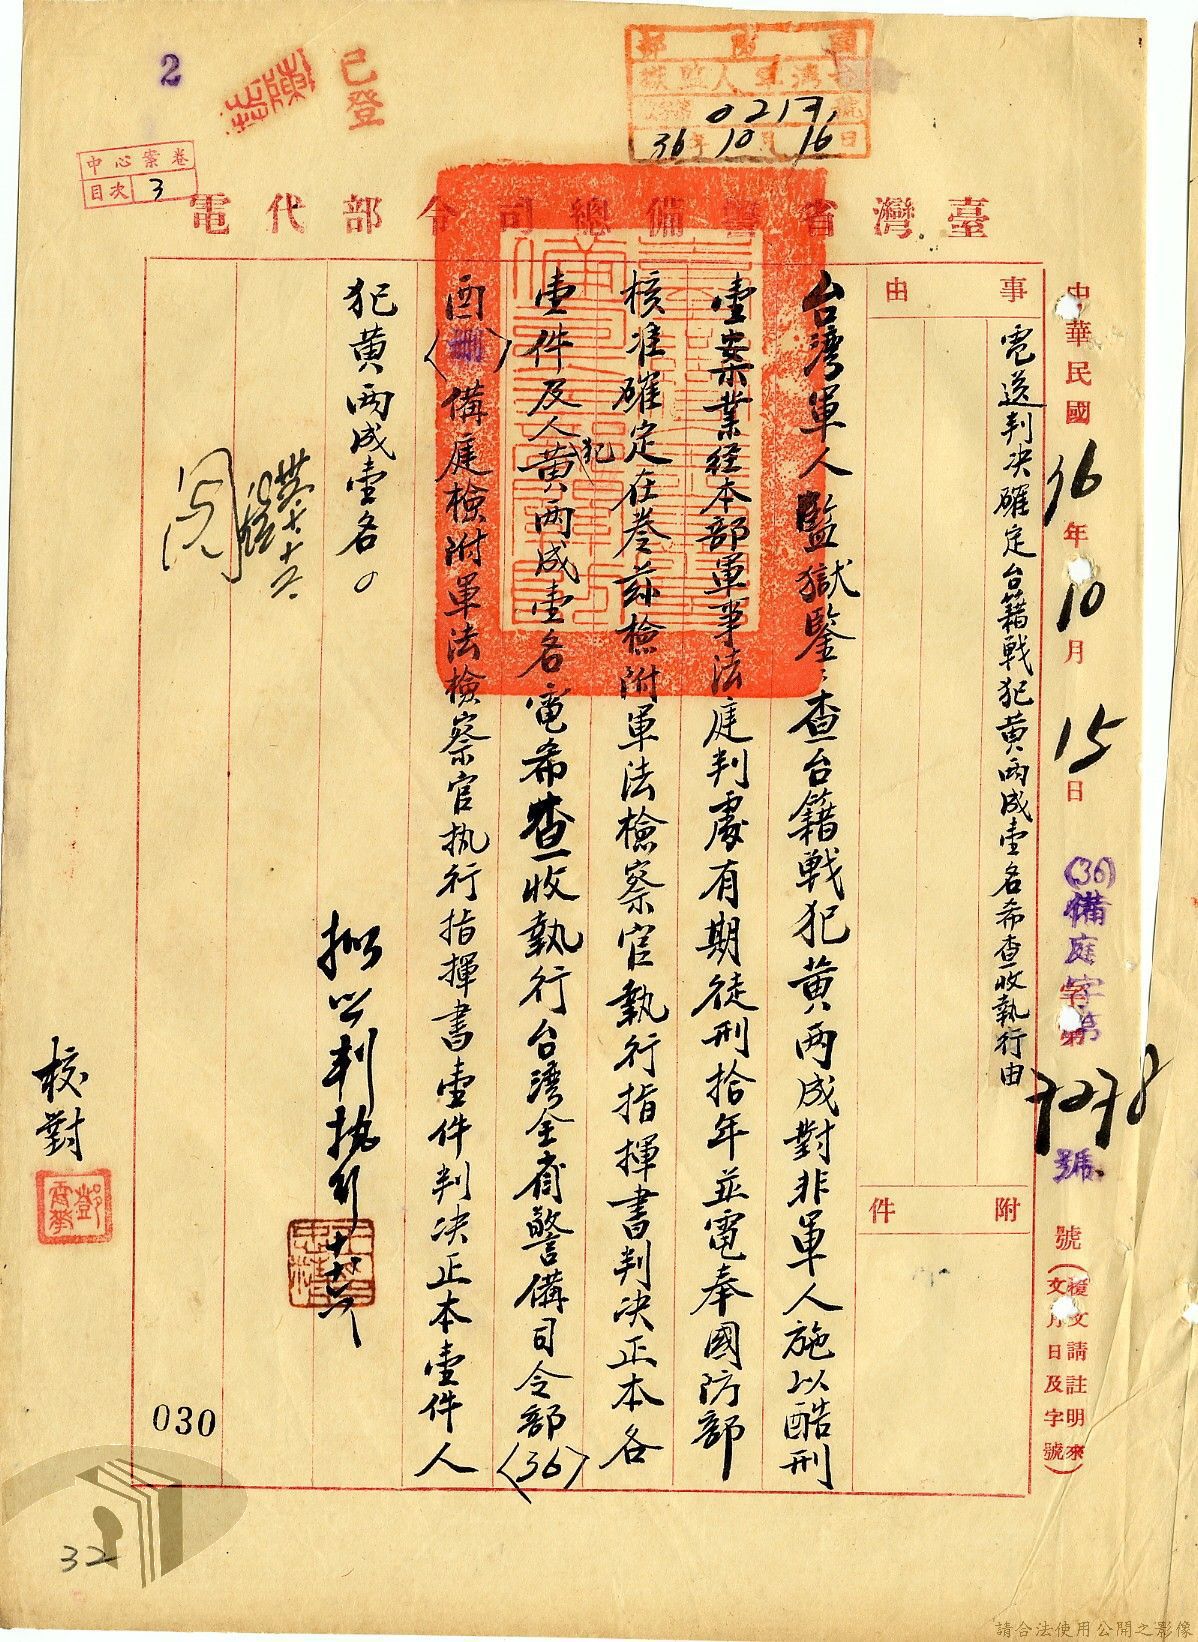 2
已登
中心案卷
目次 3
0217
36年10月16日
臺灣省警備總司令部代電
中華民國36年10月15日
(36)備庭字第7078號
號(覆文請註明來文月日及字號)
事由
電送判決確定台籍戰犯黃两成壹名希查收執行由
附件
台灣軍人監獄鑒:查台籍戰犯黃两成對非軍人施以酷刑
壹案業経本部軍事法庭判處有期徒刑拾年並電奉國防部
核准確定在卷茲檢附軍法檢察官執行指揮書判决正本各
壹件及人犯黃两成壹名電希查收執行台灣全省警備司令部(36)
酉(刪)備庭檢附軍法檢察官执行指揮書壹件判决正本壹件人
犯黃两成壹名。
拟照判执行
閱
校對
030
32
請合法使用公開之影像